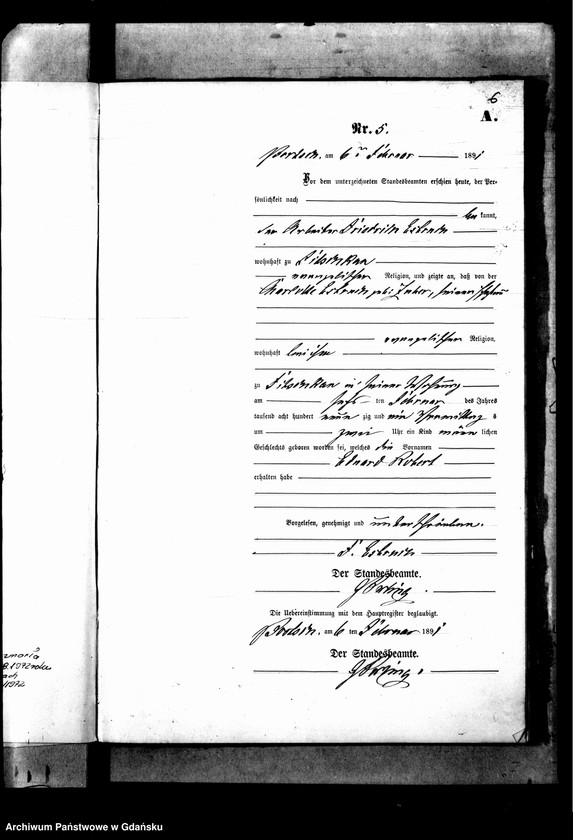 6
A.
Nr. 5.
am 6ten Februar 1891
Vor dem unterzeichneten Standesbeamten erschien heute, der Per-
sönlichkeit nach
be kannt,
der Arbeiter Friedrich
wohnhaft zu
evangelischer Religion, und zeigte an, daß von der
Charlotte geb. seiner Ehefrau
evangelischer Religion,
wohnhaft bei ihm
zu in seiner Wohnung
am sechs ten Februar des Jahres
tausend acht hundert neun zig und ein Vormittag s
um zwei Uhr ein Kind männ lichen
Geschlechts geboren worden sei, welches die Vornamen
Eduard Robert
erhalten habe
Vorgelesen, genehmigt und unterschrieben.
F.
Der Standesbeamte.
Die Uebereinstimmung mit dem Hauptregister beglaubigt.
am 6 ten Februar 1891
Der Standesbeamte.
1972
Archiwum Państwowe w Gdańsku